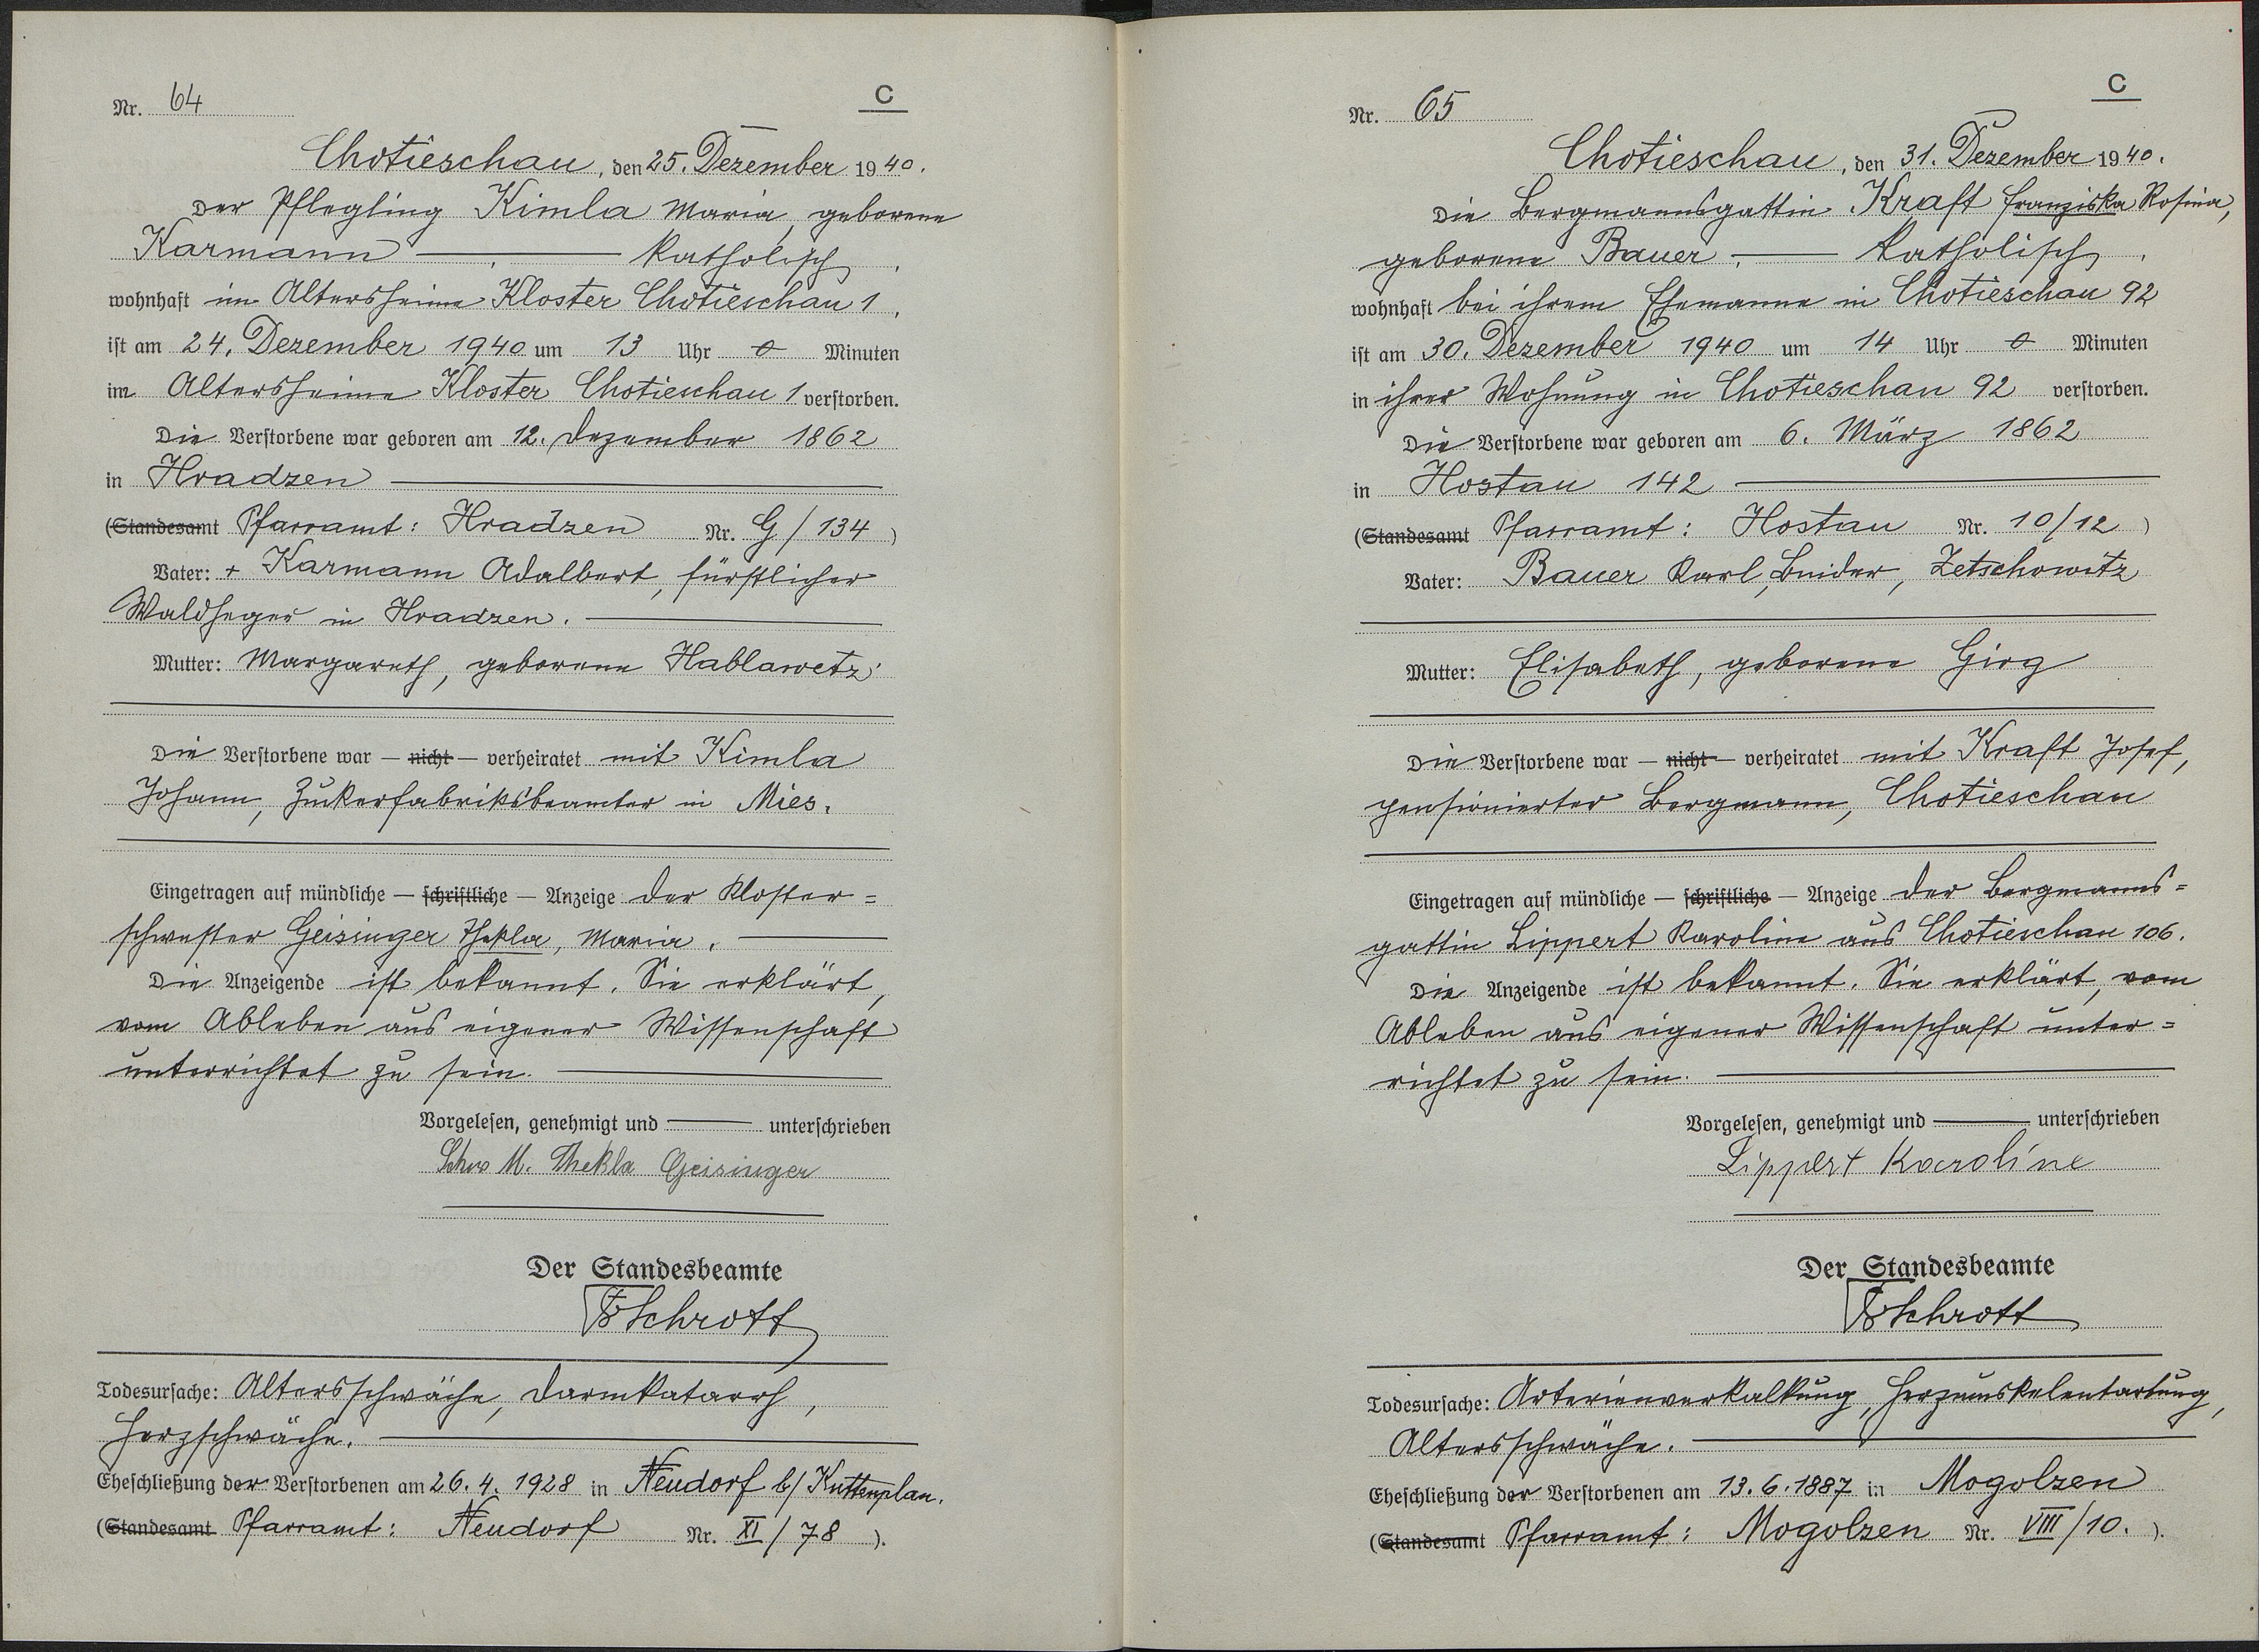 Nr. 64
C
Chotieschau, den 25. Dezember 1940.
Der Pflegling Kimla Maria, geborene
Karmann — , — katholisch,
wohnhaft im Altersheime Kloster Chotieschau 1,
ist am 24. Dezember 1940 um 13 Uhr 0 Minuten
im Altersheime Kloster Chotieschau 1 verstorben.
Die Verstorbene war geboren am 12. Dezember 1862
in Hradzen —
(Standesamt Pfarramt: Hradzen Nr. G/134)
Vater: + Karmann Adalbert, fürstlicher
Waldheger in Hradzen. —
Mutter: Margareth, geborene Hablawetz
Die Verstorbene war — nicht — verheiratet mit Kimla
Johann, Zuckerfabriksbeamter in Mies.
Eingetragen auf mündliche — schriftliche — Anzeige der Kloster=
schwester Geisinger Thekla, Maria. —
Die Anzeigende ist bekannt. Sie erklärt,
vom Ableben aus eigener Wissenschaft
unterrichtet zu sein. —
Vorgelesen, genehmigt und — unterschrieben
Schw M. Thekla Geisinger
Der Standesbeamte
Schrott
Todesursache: Altersschwäche, Darmkatarrh,
Herzschwäche. —
Eheschließung der Verstorbenen am 26.4.1928 in Neudorf b/Kuttenplan.
(Standesamt Pfarramt: Neudorf Nr. XI/78).
Nr. 65
C
Chotieschau, den 31. Dezember 1940.
Die Bergmannsgattin Kraft Franziska Rosina,
geborene Bauer, — katholisch,
wohnhaft bei ihrem Ehemanne in Chotieschau 92
ist am 30. Dezember 1940 um 14 Uhr 0 Minuten
in ihrer Wohnung in Chotieschau 92 verstorben.
Die Verstorbene war geboren am 6. März 1862
in Hostau 142 —
(Standesamt Pfarramt: Hostau Nr. 10/12)
Vater: Bauer Karl, Zetschowitz
Mutter: Elisabeth, geborene Girg
Die Verstorbene war — nicht — verheiratet mit Kraft Josef,
pensionierter Bergmann, Chotieschau
Eingetragen auf mündliche — schriftliche — Anzeige der Bergmanns=
gattin Lippert Karoline aus Chotieschau 106.
Die Anzeigende ist bekannt. Sie erklärt, vom
Ableben aus eigener Wissenschaft unter=
richtet zu sein. —
Vorgelesen, genehmigt und — unterschrieben
Lippert Karoline
Der Standesbeamte
Schrott
Todesursache: Arterienverkalkung, Herzmuskelentartung,
Altersschwäche. —
Eheschließung der Verstorbenen am 13.6.1887 in Mogolzen
(Standesamt Pfarramt: Mogolzen Nr. VIII/10.).